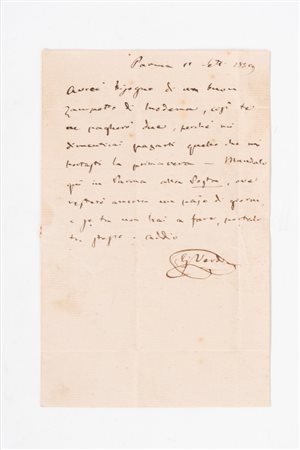 Parma 11 Set. 1859
Avrei bisogno di un buon
zampetto di Modena, così te
ne pagherò due, perché mi
dimenticai pagarti quello che mi
portasti la primavera — Mandalo
qui in Parma alla Posta, ove
resterò ancora un pajo di giorni
e se tu non hai a fare, portalo
tu stesso. Addio
G. Verdi